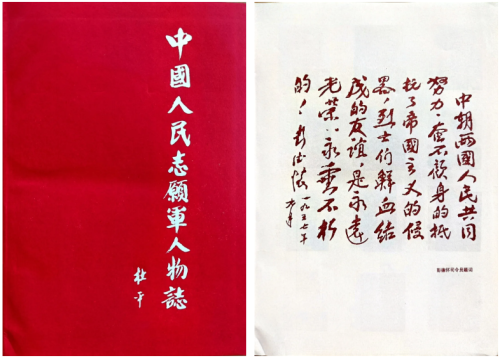 中國人民志願軍人物誌
杜平
中朝兩國人民共同
努力,奮不顧身的抵
抗了帝國主义的侵
畧,烈士们鮮血结
成的友誼,是永遠
光荣,永垂不朽
的! 彭德怀 一九五七年